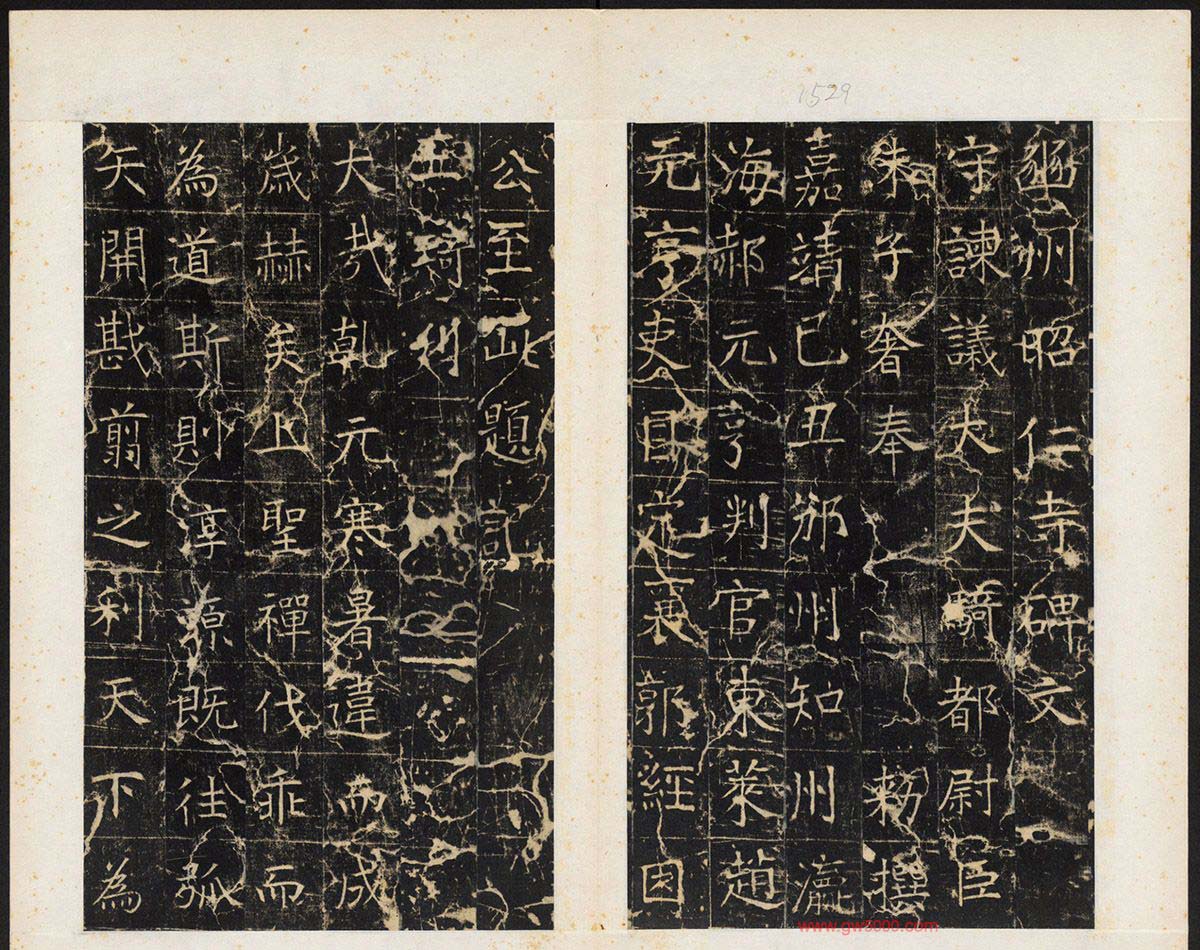 1529
豳州昭仁寺碑文
守諫議大夫騎都尉臣
朱子奢奉 勑撰
嘉靖己丑邠州知州瀛
海郝元亨判官東萊趙
元亨吏目定襄郭經因
公至此題記
大哉乾元寒暑違而成
歲赫矣上聖禪伐乖而
為道斯則淳源既往弧
矢開戡翦之利天下為
www.gw5000.com